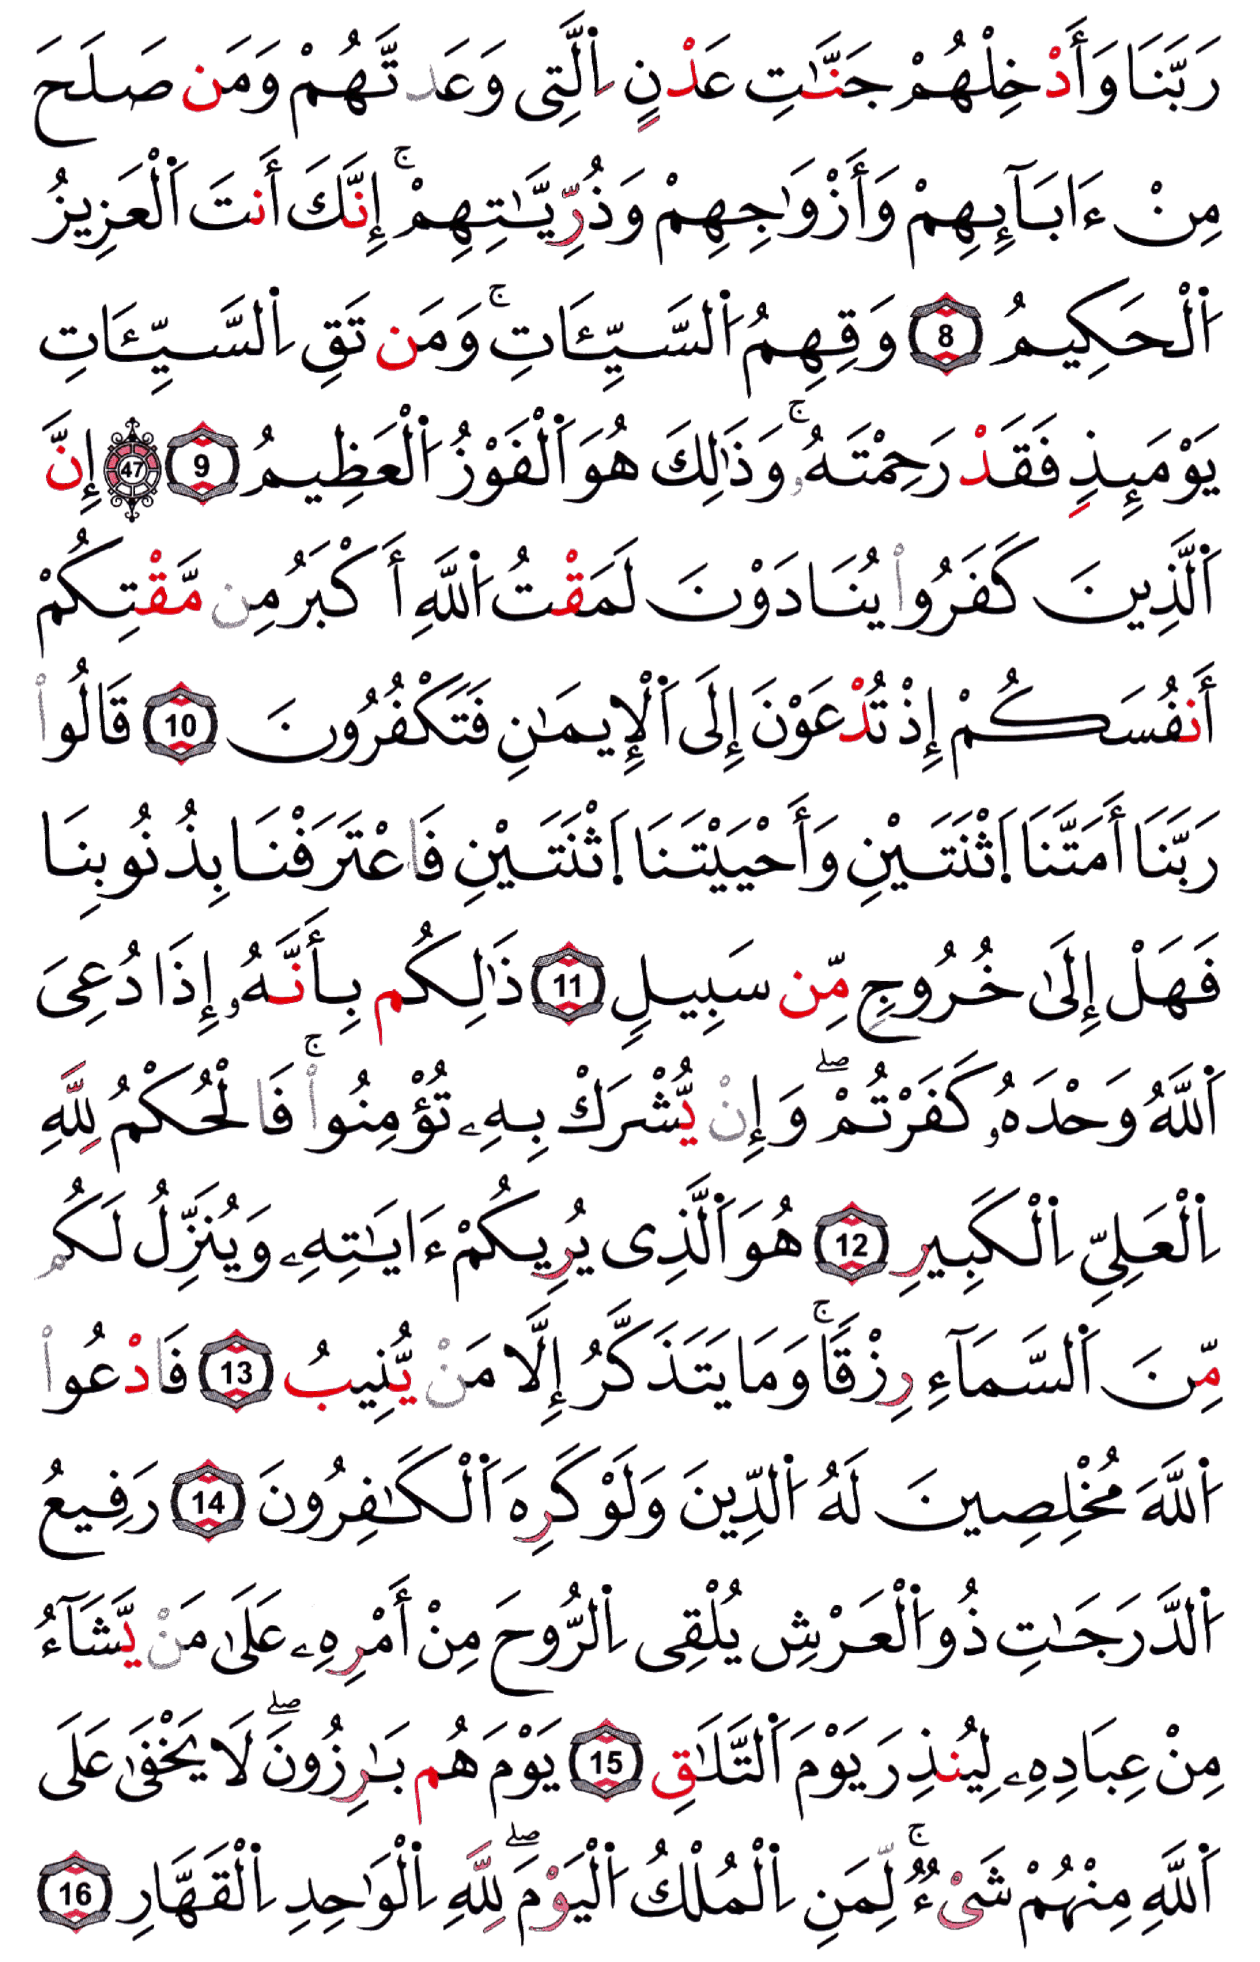 رَبَّنَا وَأَدْخِلْهُمْ جَنَّٰتِ عَدْنٍ اِ۬لَّتِى وَعَدتَّهُمْ وَمَن صَلَحَ
مِنْ ءَابَآئِهِمْ وَأَزْوَٰجِهِمْ وَذُرِّيَّٰتِهِمْ ۚ إِنَّكَ أَنتَ اَ۬لْعَزِيزُ
اُ۬لْحَكِيمُ 8 وَقِهِمُ اُ۬لسَّيِّـَٔاتِ ۚ وَمَن تَقِ اِ۬لسَّيِّـَٔاتِ
يَوْمَئِذٍ فَقَدْ رَحِمْتَهُۥ ۚ وَذَٰلِكَ هُوَ اَ۬لْفَوْزُ اُ۬لْعَظِيمُ 9 47 إِنَّ
اَ۬لَّذِينَ كَفَرُواْ يُنَادَوْنَ لَمَقْتُ اُ۬للَّهِ أَكْبَرُ مِن مَّقْتِكُمْ
أَنفُسَكُمْ إِذْ تُدْعَوْنَ إِلَى اَ۬لْإِيمَٰنِ فَتَكْفُرُونَ 10 قَالُواْ
رَبَّنَا أَمَتَّنَا اَ۪ثْنَتَيْنِ وَأَحْيَيْتَنَا اَ۪ثْنَتَيْنِ فَاعْتَرَفْنَا بِذُنُوبِنَا
فَهَلْ إِلَىٰ خُرُوجٍ مِّن سَبِيلٍ 11 ذَٰلِكُم بِأَنَّهُۥ إِذَا دُعِىَ
اَ۬للَّهُ وَحْدَهُۥ كَفَرْتُمْ ۖ وَإِنْ يُّشْرَكْ بِهِۦ تُؤْمِنُواْ ۚ فَالْحُكْمُ لِلَّهِ
اِ۬لْعَلِىِّ اِ۬لْكَبِيرِ 12 هُوَ اَ۬لَّذِى يُرِيكُمْ ءَايَٰتِهِۦ وَيُنَزِّلُ لَكُم
مِّنَ اَ۬لسَّمَآءِ رِزْقًا ۚ وَمَا يَتَذَكَّرُ إِلَّا مَنْ يُّنِيبُ 13 فَادْعُواْ
اُ۬للَّهَ مُخْلِصِينَ لَهُ اُ۬لدِّينَ وَلَوْ كَرِهَ اَ۬لْكَٰفِرُونَ 14 رَفِيعُ
اُ۬لدَّرَجَٰتِ ذُو اُ۬لْعَرْشِ يُلْقِى اِ۬لرُّوحَ مِنْ أَمْرِهِۦ عَلَىٰ مَنْ يَّشَآءُ
مِنْ عِبَادِهِۦ لِيُنذِرَ يَوْمَ اَ۬لتَّلَٰقِ 15 يَوْمَ هُم بَٰرِزُونَ ۖ لَا يَخْفَىٰ عَلَى
اَ۬للَّهِ مِنْهُمْ شَىْءٌ ۚ لِّمَنِ اِ۬لْمُلْكُ اُ۬لْيَوْمَ ۖ لِلَّهِ اِ۬لْوَٰحِدِ اِ۬لْقَهَّارِ 16